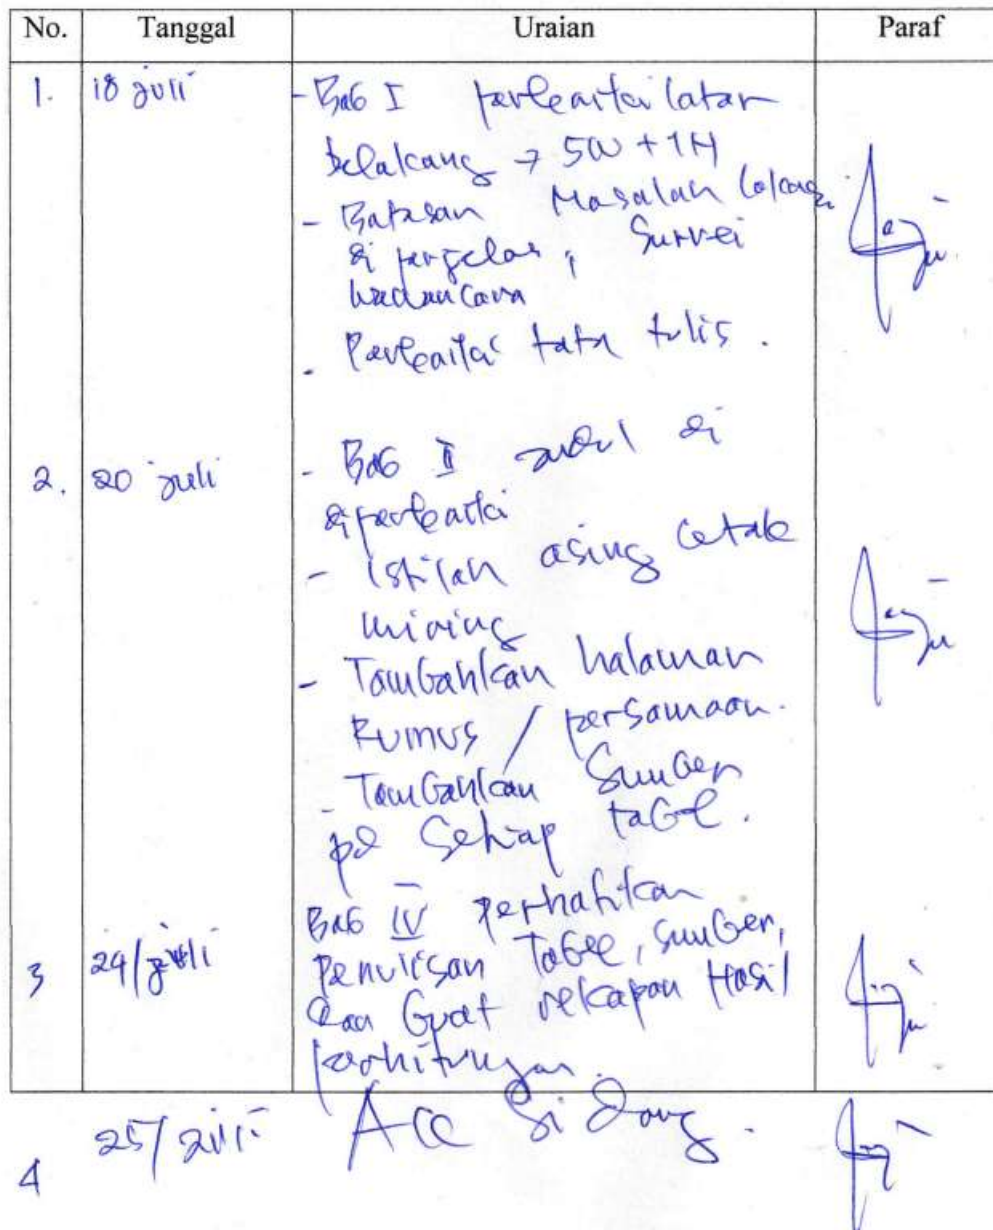 No. Tanggal Uraian Paraf
1. 18 juli - Bab I perbaiki latar
belakang → 5W + 1H
- Batasan Masalah lokasi
di perjelas, Survei
wawancara
- Perbaiki tata tulis.
2. 20 juli - Bab II judul di
diperbaiki
- istilah asing cetak
miring
- Tambahkan halaman
Rumus / persamaan.
- Tambahkan Sumber
pd Setiap tabel.
3 24/juli Bab IV perhatikan
Penulisan Tabel, sumber,
dan Buat rekapan Hasil
perhitungan.
4 25/juli Acc Sidang.